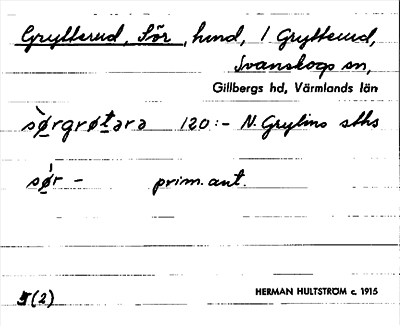 Grytterud, Sör, hmd, i Grytterud,
Svanskogs sn,
Gillbergs hd, Värmlands län
sø̀rgrøtərə 120:- N. Grylins sths
sø̍r - prim. ant.
(2)
HERMAN HULTSTRÖM c. 1915